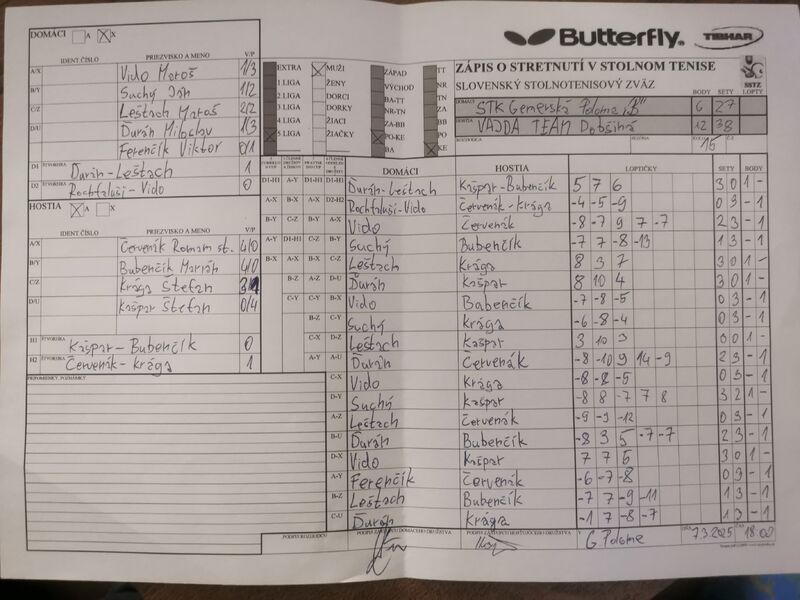 Butterfly. TIBHAR
ZÁPIS O STRETNUTÍ V STOLNOM TENISE
SLOVENSKÝ STOLNOTENISOVÝ ZVÄZ
SSTZ
BODY SETY LOPTY
DOMÁCI STK Gemerská Poloma "B" 6 27
HOSTIA VAJDA TEAM Dobšiná 12 38
15
DOMÁCI A X
IDENT. ČÍSLO PRIEZVISKO A MENO V/P
A/X Vido Maroš 1/3
B/Y Suchý Ján 1/2
C/Z Leštach Maroš 2/2
D/U Ďurán Miloslav 1/3
Ferenčík Viktor 0/1
D1 ŠTVORHRA Ďurán-Leštach 1
D2 ŠTVORHRA Rochfaluši-Vido 0
HOSTIA A X
IDENT. ČÍSLO PRIEZVISKO A MENO V/P
A/X Červeňák Roman st. 4/0
B/Y Bubenčík Marián 4/0
C/Z Krága Štefan
D/U Kašpar Štefan 0/4
H1 ŠTVORHRA Kašpar-Bubenčík 0
H2 ŠTVORHRA Červeňák-Krága 1
PRIPOMIENKY, POZNÁMKY
EXTRA MUŽI ZÁPAD TT
1 LIGA ŽENY VÝCHOD NR
2 LIGA DORCI BA-TT TN
3 LIGA DORKY NR-TN ZA
4 LIGA ŽIACI ZA-BB BB
5 LIGA ŽIAČKY PO-KE PO
BA KE
DOMÁCI HOSTIA LOPTIČKY SETY BODY
D1-H1 A-Y D1-H1 D1-H1 Ďurán-Leštach Kašpar-Bubenčík 5 7 6 3 0 1 -
A-X B-X A-X D2-H2 Rochfaluši-Vido Červeňák-Krága -4 -5 -9 0 3 - 1
B-Y C-Z B-Y A-X Vido Červeňák -8 -7 9 7 -7 2 3 - 1
A-Y D1-H1 C-Z B-Y Suchý Bubenčík -7 7 -8 -13 1 3 - 1
B-X A-X D1-H1 C-Z Leštach Krága 8 3 7 3 0 1 -
B-Z A-Z D-U Ďurán Kašpar 8 10 4 3 0 1 -
C-Y C-Y B-X Vido Babenčík -7 -8 -5 0 3 - 1
B-Z C-Y Suchý Krága -6 -8 -4 0 3 - 1
C-X D-Z Leštach Kašpar 3 10 3 0 1 -
A-Y A-U Ďurán Červeňák -8 -10 9 14 -9 2 3 - 1
C-X Vido Krága -8 -8 -5 0 3 - 1
D-Y Suchý Kašpar -8 8 -7 7 8 3 2 1 -
A-Z Leštach Červeňák -9 -3 -12 0 3 - 1
B-U Ďurán Bubenčík -8 3 5 -7 -7 2 3 - 1
D-X Vido Kašpar 7 7 5 3 0 1 -
A-Y Ferenčík Červeňák -6 -7 -8 0 3 - 1
B-Z Leštach Bubenčík -7 7 -9 -11 1 3 - 1
C-U Ďurán Krága -1 7 -8 -7 1 3 - 1
PODPIS ROZHODCU PODPIS ZÁSTUPCU DOMÁCEHO DRUŽSTVA PODPIS ZÁSTUPCU HOSŤUJÚCEHO DRUŽSTVA V G. Poloma 7.3.2025 18.00